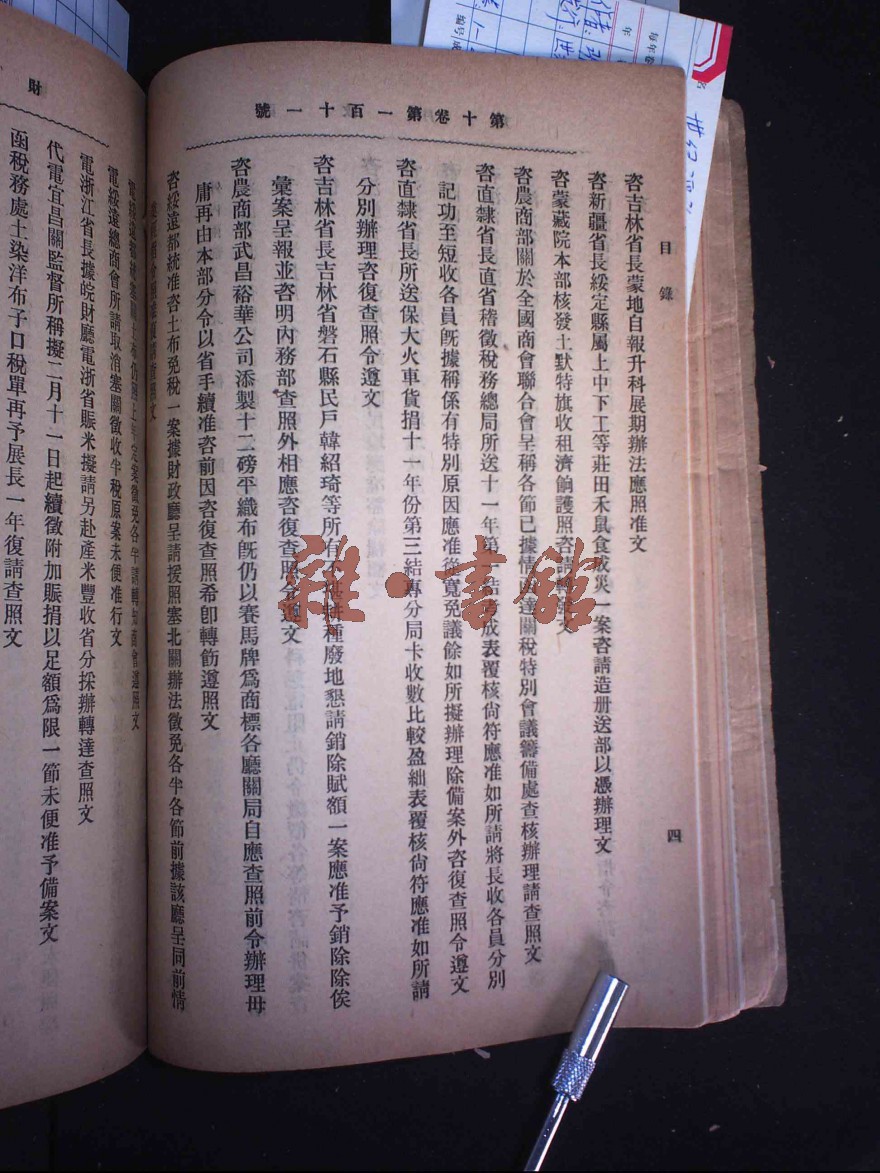 第十卷第一百十一號
目錄
四
咨吉林省長蒙地自報升科展期辦法應照准文
咨新疆省長綏定縣屬上中下工等莊田禾鼠食成災一案咨請造册送部以憑辦理文
咨蒙藏院本部核發土默特旗收租濟餉護照咨請轉文
咨農商部關於全國商會聯合會呈稱各節已據情函達關稅特別會議籌備處查核辦理請查照文
咨直隸省長直省稽徵稅務總局所送十一年第一結考成表覆核尙符應准如所請將長收各員分別
記功至短收各員旣據稱係有特別原因應准從寬免議餘如所擬辦理除備案外咨復查照令遵文
咨直隸省長所送保大火車貨捐十一年份第三結專分局卡收數比較盈絀表覆核尙符應准如所請
分別辦理咨復查照令遵文
咨吉林省長吉林省磐石縣民戶韓紹琦等所有不堪種廢地懇請銷除賦額一案應准予銷除除俟
彙案呈報並咨明內務部查照外相應咨復查照文
咨農商部武昌裕華公司添製十二磅平織布旣仍以賽馬牌爲商標各廳關局自應查照前令辦理毋
庸再由本部分令以省手續准咨前因咨復查照希卽轉飭遵照文
咨綏遠都統准咨土布免稅一案據財政廳呈請援照塞北關辦法徵免各半各節前據該廳呈同前情
查照文
電綏遠總商會所請取消塞關徵收半稅原案未便准行文
電浙江省長據皖財廳電浙省賑米擬請另赴產米豐收省分採辦轉達查照文
代電宜昌關監督所稱擬二月十一日起續徵附加賑捐以足額爲限一節未便准予備案文
函稅務處土染洋布子口稅單再予展長一年復請查照文
財
雜·書館